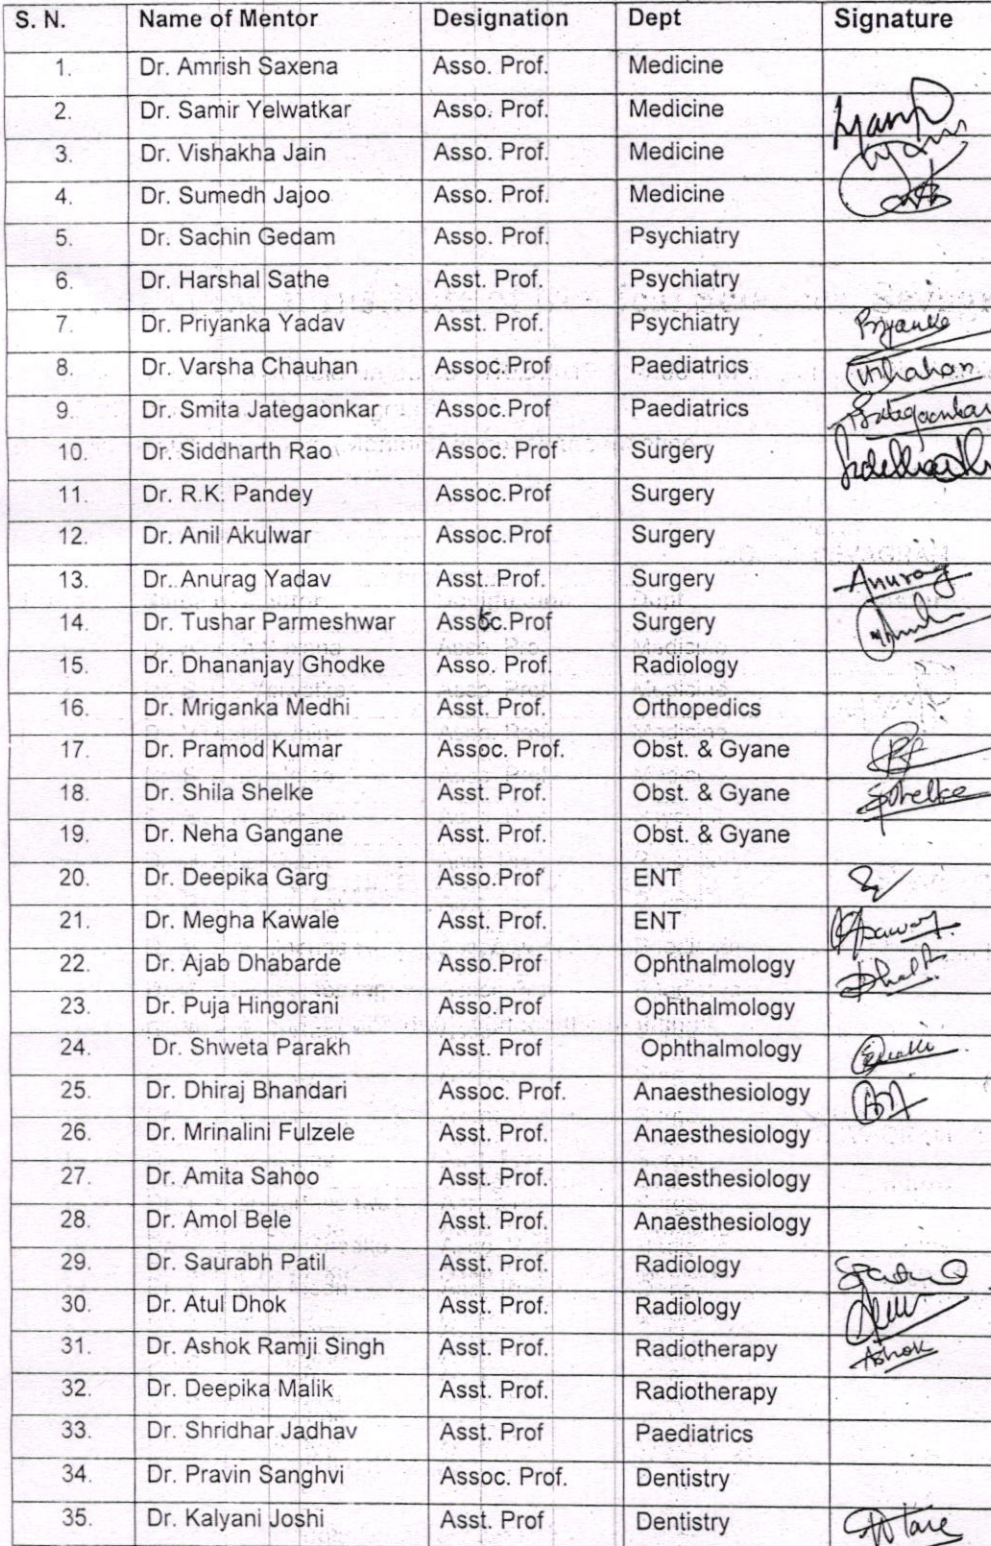 S. N. Name of Mentor Designation Dept Signature
1. Dr. Amrish Saxena Asso. Prof. Medicine
2. Dr. Samir Yelwatkar Asso. Prof. Medicine
3. Dr. Vishakha Jain Asso. Prof. Medicine
4. Dr. Sumedh Jajoo Asso. Prof. Medicine
5. Dr. Sachin Gedam Asso. Prof. Psychiatry
6. Dr. Harshal Sathe Asst. Prof. Psychiatry
7. Dr. Priyanka Yadav Asst. Prof. Psychiatry Priyanka
8. Dr. Varsha Chauhan Assoc.Prof Paediatrics
9. Dr. Smita Jategaonkar Assoc.Prof Paediatrics
10. Dr. Siddharth Rao Assoc. Prof Surgery
11. Dr. R.K. Pandey Assoc.Prof Surgery
12. Dr. Anil Akulwar Assoc.Prof Surgery
13. Dr. Anurag Yadav Asst. Prof. Surgery Anurag
14. Dr. Tushar Parmeshwar Assoc.Prof Surgery
15. Dr. Dhananjay Ghodke Asso. Prof. Radiology
16. Dr. Mriganka Medhi Asst. Prof. Orthopedics
17. Dr. Pramod Kumar Assoc. Prof. Obst. & Gyane
18. Dr. Shila Shelke Asst. Prof. Obst. & Gyane Shelke
19. Dr. Neha Gangane Asst. Prof. Obst. & Gyane
20. Dr. Deepika Garg Asso.Prof ENT
21. Dr. Megha Kawale Asst. Prof. ENT
22. Dr. Ajab Dhabarde Asso.Prof Ophthalmology
23. Dr. Puja Hingorani Asso.Prof Ophthalmology
24. Dr. Shweta Parakh Asst. Prof Ophthalmology
25. Dr. Dhiraj Bhandari Assoc. Prof. Anaesthesiology
26. Dr. Mrinalini Fulzele Asst. Prof. Anaesthesiology
27. Dr. Amita Sahoo Asst. Prof. Anaesthesiology
28. Dr. Amol Bele Asst. Prof. Anaesthesiology
29. Dr. Saurabh Patil Asst. Prof. Radiology
30. Dr. Atul Dhok Asst. Prof. Radiology
31. Dr. Ashok Ramji Singh Asst. Prof. Radiotherapy Ashok
32. Dr. Deepika Malik Asst. Prof. Radiotherapy
33. Dr. Shridhar Jadhav Asst. Prof Paediatrics
34. Dr. Pravin Sanghvi Assoc. Prof. Dentistry
35. Dr. Kalyani Joshi Asst. Prof Dentistry